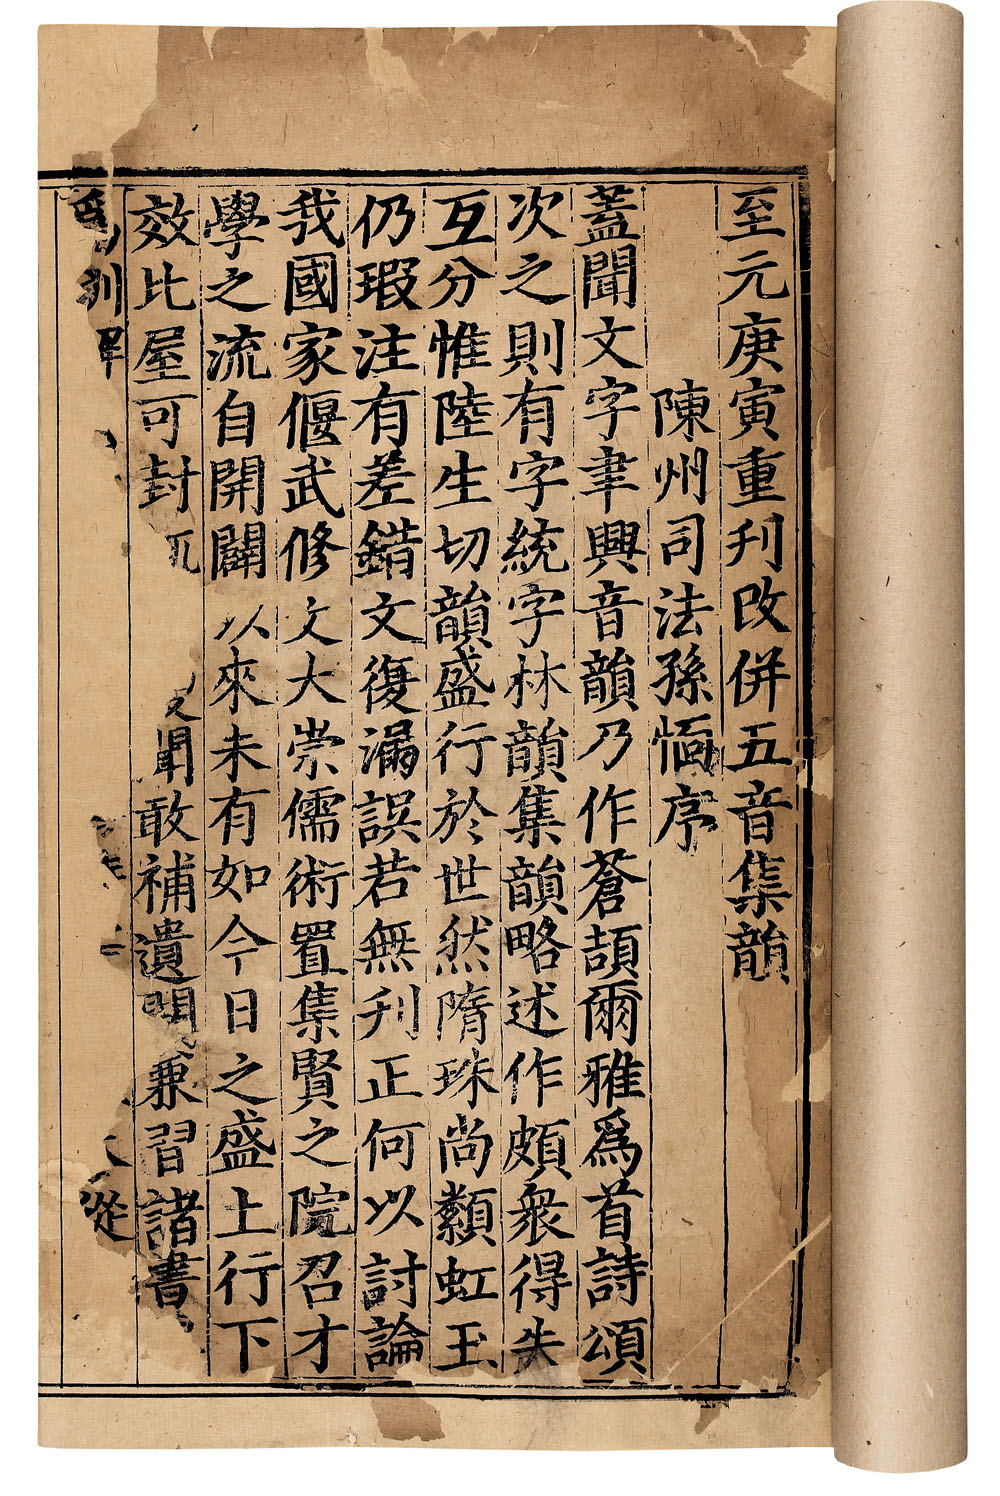 至元庚寅重刊改併五音集韻
陳州司法孫愐序
蓋聞文字聿興音韻乃作蒼頡爾雅爲首詩頌
次之則有字統字林韻集韻略述作頗衆得失
互分惟陸生切韻盛行於世然隋珠尚纇虹玉
仍瑕注有差錯文復漏誤若無刊正何以討論
我國家偃武修文大崇儒術置集賢之院召才
學之流自開闢以來未有如今日之盛上行下
效比屋可封敢補遺兼習諸書
刊從